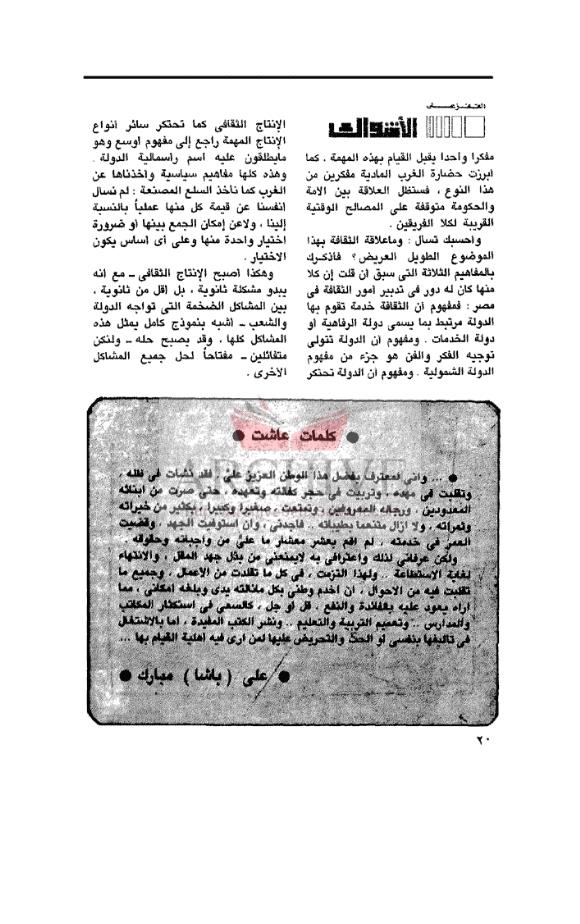 القفز على
الأشواك
مفكرا واحدا يقبل القيام بهذه المهمة ، كما
أبرزت حضارة الغرب المادية مفكرين من
هذا النوع ، فستظل العلاقة بين الأمة
والحكومة متوقفة على المصالح الوقتية
القريبة لكلا الفريقين .
وأحسبك تسأل : وماعلاقة الثقافة بهذا
الموضوع الطويل العريض؟ فأذكرك
بالمفاهيم الثلاثة التى سبق أن قلت إن كلا
منها كان له دور فى تدبير أمور الثقافة فى
مصر : فمفهوم أن الثقافة خدمة تقوم بها
الدولة مرتبط بما يسمى دولة الرفاهية أو
دولة الخدمات . ومفهوم أن الدولة تتولى
توجيه الفكر والفن هو جزء من مفهوم
الدولة الشمولية . ومفهوم أن الدولة تحتكر
الإنتاج الثقافى كما تحتكر سائر أنواع
الإنتاج المهمة راجع إلى مفهوم أوسع وهو
مايطلقون عليه اسم رأسمالية الدولة .
وهذه كلها مفاهيم سياسية وأخذناها عن
الغرب كما نأخذ السلع المصنعة : لم نسأل
أنفسنا عن قيمة كل منها عمليا بالنسبة
إلينا ، ولاعن إمكان الجمع بينها أو ضرورة
اختيار واحدة منها وعلى أى أساس يكون
الاختيار .
وهكذا أصبح الإنتاج الثقافى – مع أنه
يبدو مشكلة ثانوية ، بل أقل من ثانوية ،
بين المشاكل الضخمة التى تواجه الدولة
والشعب – أشبه بنموذج كامل يمثل هذه
المشاكل كلها ، وقد يصبح حله – ولنكن
متفائلين – مفتاحاً لحل جميع المشاكل
الأخرى .
● كلمات عاشت ●
ARCHIVE
● ... وانى لمعترف بفضل هذا الوطن العزيز علىّ فقد نشأت فى ظله ،
وتقلبت فى مهده ، وتربيت فى حجر كفالته وتعهده ، حتى صرت من أبنائه
المعدودين ، ورجاله المعروفين ، وتمتعت ، صغيرا وكبيرا ، بكثير من خيراته
وثمراته ، ولا أزال متنعما بطيباته .. فأجدنى ، وأن استوفيت الجهد ، وقضيت
العمر فى خدمته ، لم أقم بعشر معشار ما علىّ من واجباته وحقوقه
ولكن عرفانى لذلك واعترافى به لايمنعنى من بذل جهد المقل ، والانتهاء
لغاية الاستطاعة .. ولهذا التزمت ، فى كل ما تقلدت من الأعمال ، وجميع ما
تقلبت فيه من الأحوال ، أن أخدم وطنى بكل مانالته يدى وبلغه امكانى ، مما
أراه يعود عليه بالفائدة والنفع ، قل أو جل ، كالسعى فى استكثار المكاتب
والمدارس .. وتعميم التربية والتعليم .. ونشر الكتب المفيدة ، أما بالاشتغال
فى تأليفها بنفسى أو الحث والتحريض عليها لمن أرى فيه أهلية القيام بها ...
● على ( باشا ) مبارك ●
٢٠